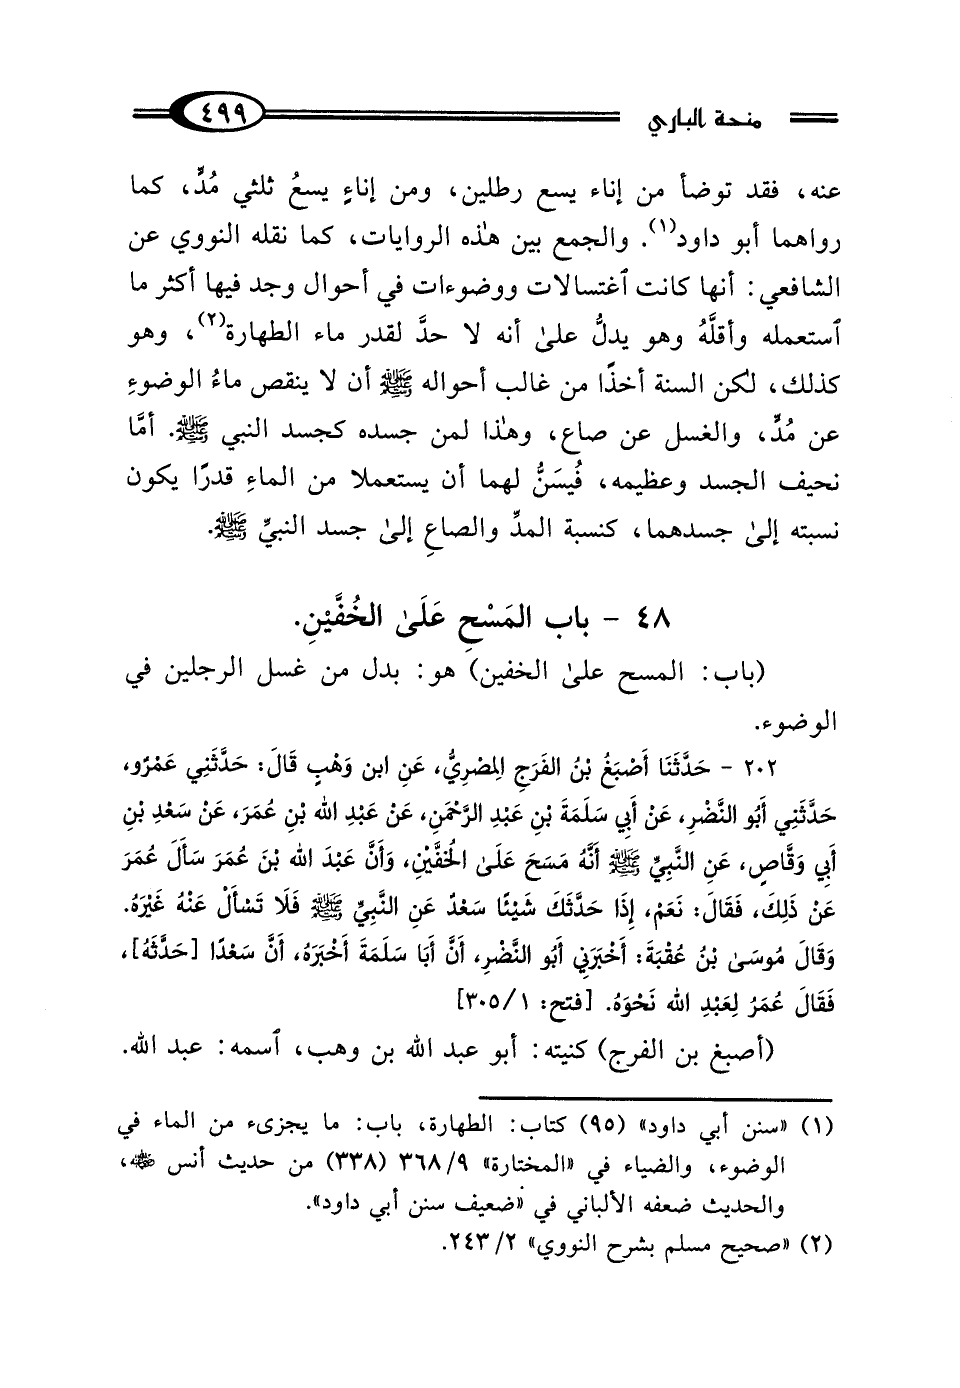 منحة الباري ٤٩٩
عنه، فقد توضأ من إناء يسع رطلين، ومن إناءٍ يسعُ ثلثي مُدٍّ، كما
رواهما أبو داود(١). والجمع بين هذه الروايات، كما نقله النووي عن
الشافعي: أنها كانت ٱغتسالات ووضوءات في أحوال وجد فيها أكثر ما
ٱستعمله وأقلَّهُ وهو يدلُّ علىٰ أنه لا حدَّ لقدر ماء الطهارة(٢)، وهو
كذلك، لكن السنة أخذًا من غالب أحواله ﷺ أن لا ينقص ماءُ الوضوءِ
عن مُدٍّ، والغسل عن صاع، وهذا لمن جسده كجسد النبي ﷺ. أمَّا
نحيف الجسد وعظيمه، فُيسَنُّ لهما أن يستعملا من الماءِ قدرًا يكون
نسبته إلىٰ جسدهما، كنسبة المدِّ والصاعِ إلىٰ جسد النبيِّ ﷺ.
٤٨ - باب المَسْحِ عَلَىٰ الخُفَّيْنِ.
(باب: المسح علىٰ الخفين) هو: بدل من غسل الرجلين في
الوضوء.
٢٠٢ - حَدَّثَنَا أَصْبَغُ بْنُ الفَرَجِ المِصْرِيُّ، عَنِ ابن وَهْبٍ قَالَ: حَدَّثَنِي عَمْرٌو،
حَدَّثَنِي أَبُو النَّضْرِ، عَنْ أَبِي سَلَمَةَ بْنِ عَبْدِ الرَّحْمَنِ، عَنْ عَبْدِ الله بْنِ عُمَرَ، عَنْ سَعْدِ بْنِ
أَبِي وَقَّاصٍ، عَنِ النَّبِيِّ ﷺ أَنَّهُ مَسَحَ عَلَىٰ الخُفَّيْنِ، وَأَنَّ عَبْدَ الله بْنَ عُمَرَ سَأَلَ عُمَرَ
عَنْ ذَلِكَ، فَقَالَ: نَعَمْ، إِذَا حَدَّثَكَ شَيْئًا سَعْدٌ عَنِ النَّبِيِّ ﷺ فَلَا تَسْأَلْ عَنْهُ غَيْرَهُ.
وَقَالَ مُوسَىٰ بْنُ عُقْبَةَ: أَخْبَرَنِي أَبُو النَّضْرِ، أَنَّ أَبَا سَلَمَةَ أَخْبَرَهُ، أَنَّ سَعْدًا [حَدَّثَهُ]،
فَقَالَ عُمَرُ لِعَبْدِ الله نَحْوَهُ. [فتح: ١/ ٣٠٥]
(أصبغ بن الفرج) كنيته: أبو عبد الله بن وهب، ٱسمه: عبد الله.
(١) «سنن أبي داود» (٩٥) كتاب: الطهارة، باب: ما يجزىء من الماء في
الوضوء، والضياء في «المختارة» ٩/ ٣٦٨ (٣٣٨) من حديث أنس ﵁،
والحديث ضعفه الألباني في «ضعيف سنن أبي داود».
(٢) «صحيح مسلم بشرح النووي» ٢/ ٢٤٣.